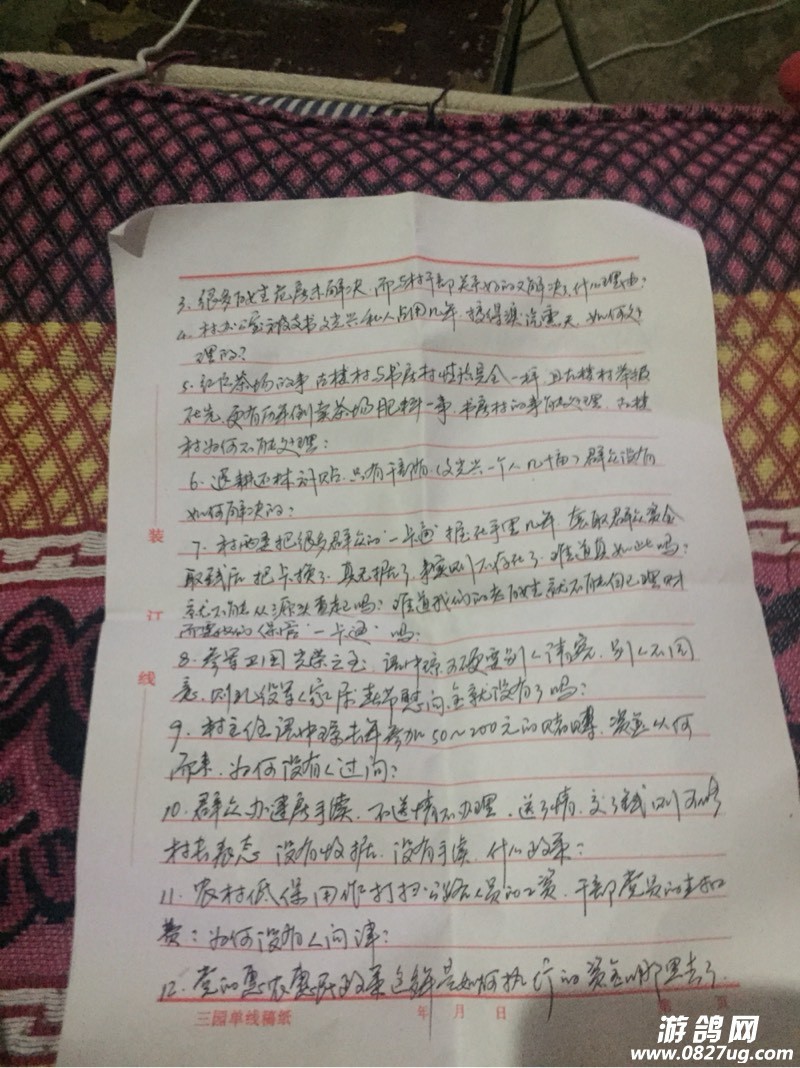 3、很多的危房未解决，而与村干部关系好的又解决，什么理由？
4、村办公室被支书文光兴私人占用几年，搞得乌烟瘴气，如何处
理的？
5、红心茶场的事，古楼村与书房村性质是完全一样，且古楼村举报
在先，更有历年倒卖茶场肥料一事，书房村的事能处理，古楼
村为何不能处理？
6、退耕还林补贴，只有干部有（文光兴一个人几十亩）群众没有
如何解决的？
7、村两委把很多群众的"一卡通"握在手里几年，套取群众资金
取钱后把卡换了，真无据了，事实则不存在了，难道真如此吗？
就不能从源头查起吗？难道我们的老百姓就不能自己理财
而要他们保管"一卡通"吗？
8、参军卫国光荣之至，谭中琼硬要别人请客，别人不同
意，则孔设军人家属春节慰问金就没有了吗？
9、村主任谭中琼去年参加50～200元的赌博，资金从何
而来，为何没有人过问？
10、群众办建房手续，不送情不办理，送了情，交了钱则
村长表态，没有收据，没有手续，什么政策？
11、农村低保用作打扫公路人员的工资，干部党员的
费？为何没有人问津？
12、党的惠农惠民政策这些年是如何执行的资金哪里去了
装
订
线
三园单线稿纸 年 月 日 第 页
游鸽网
www.0827ug.com